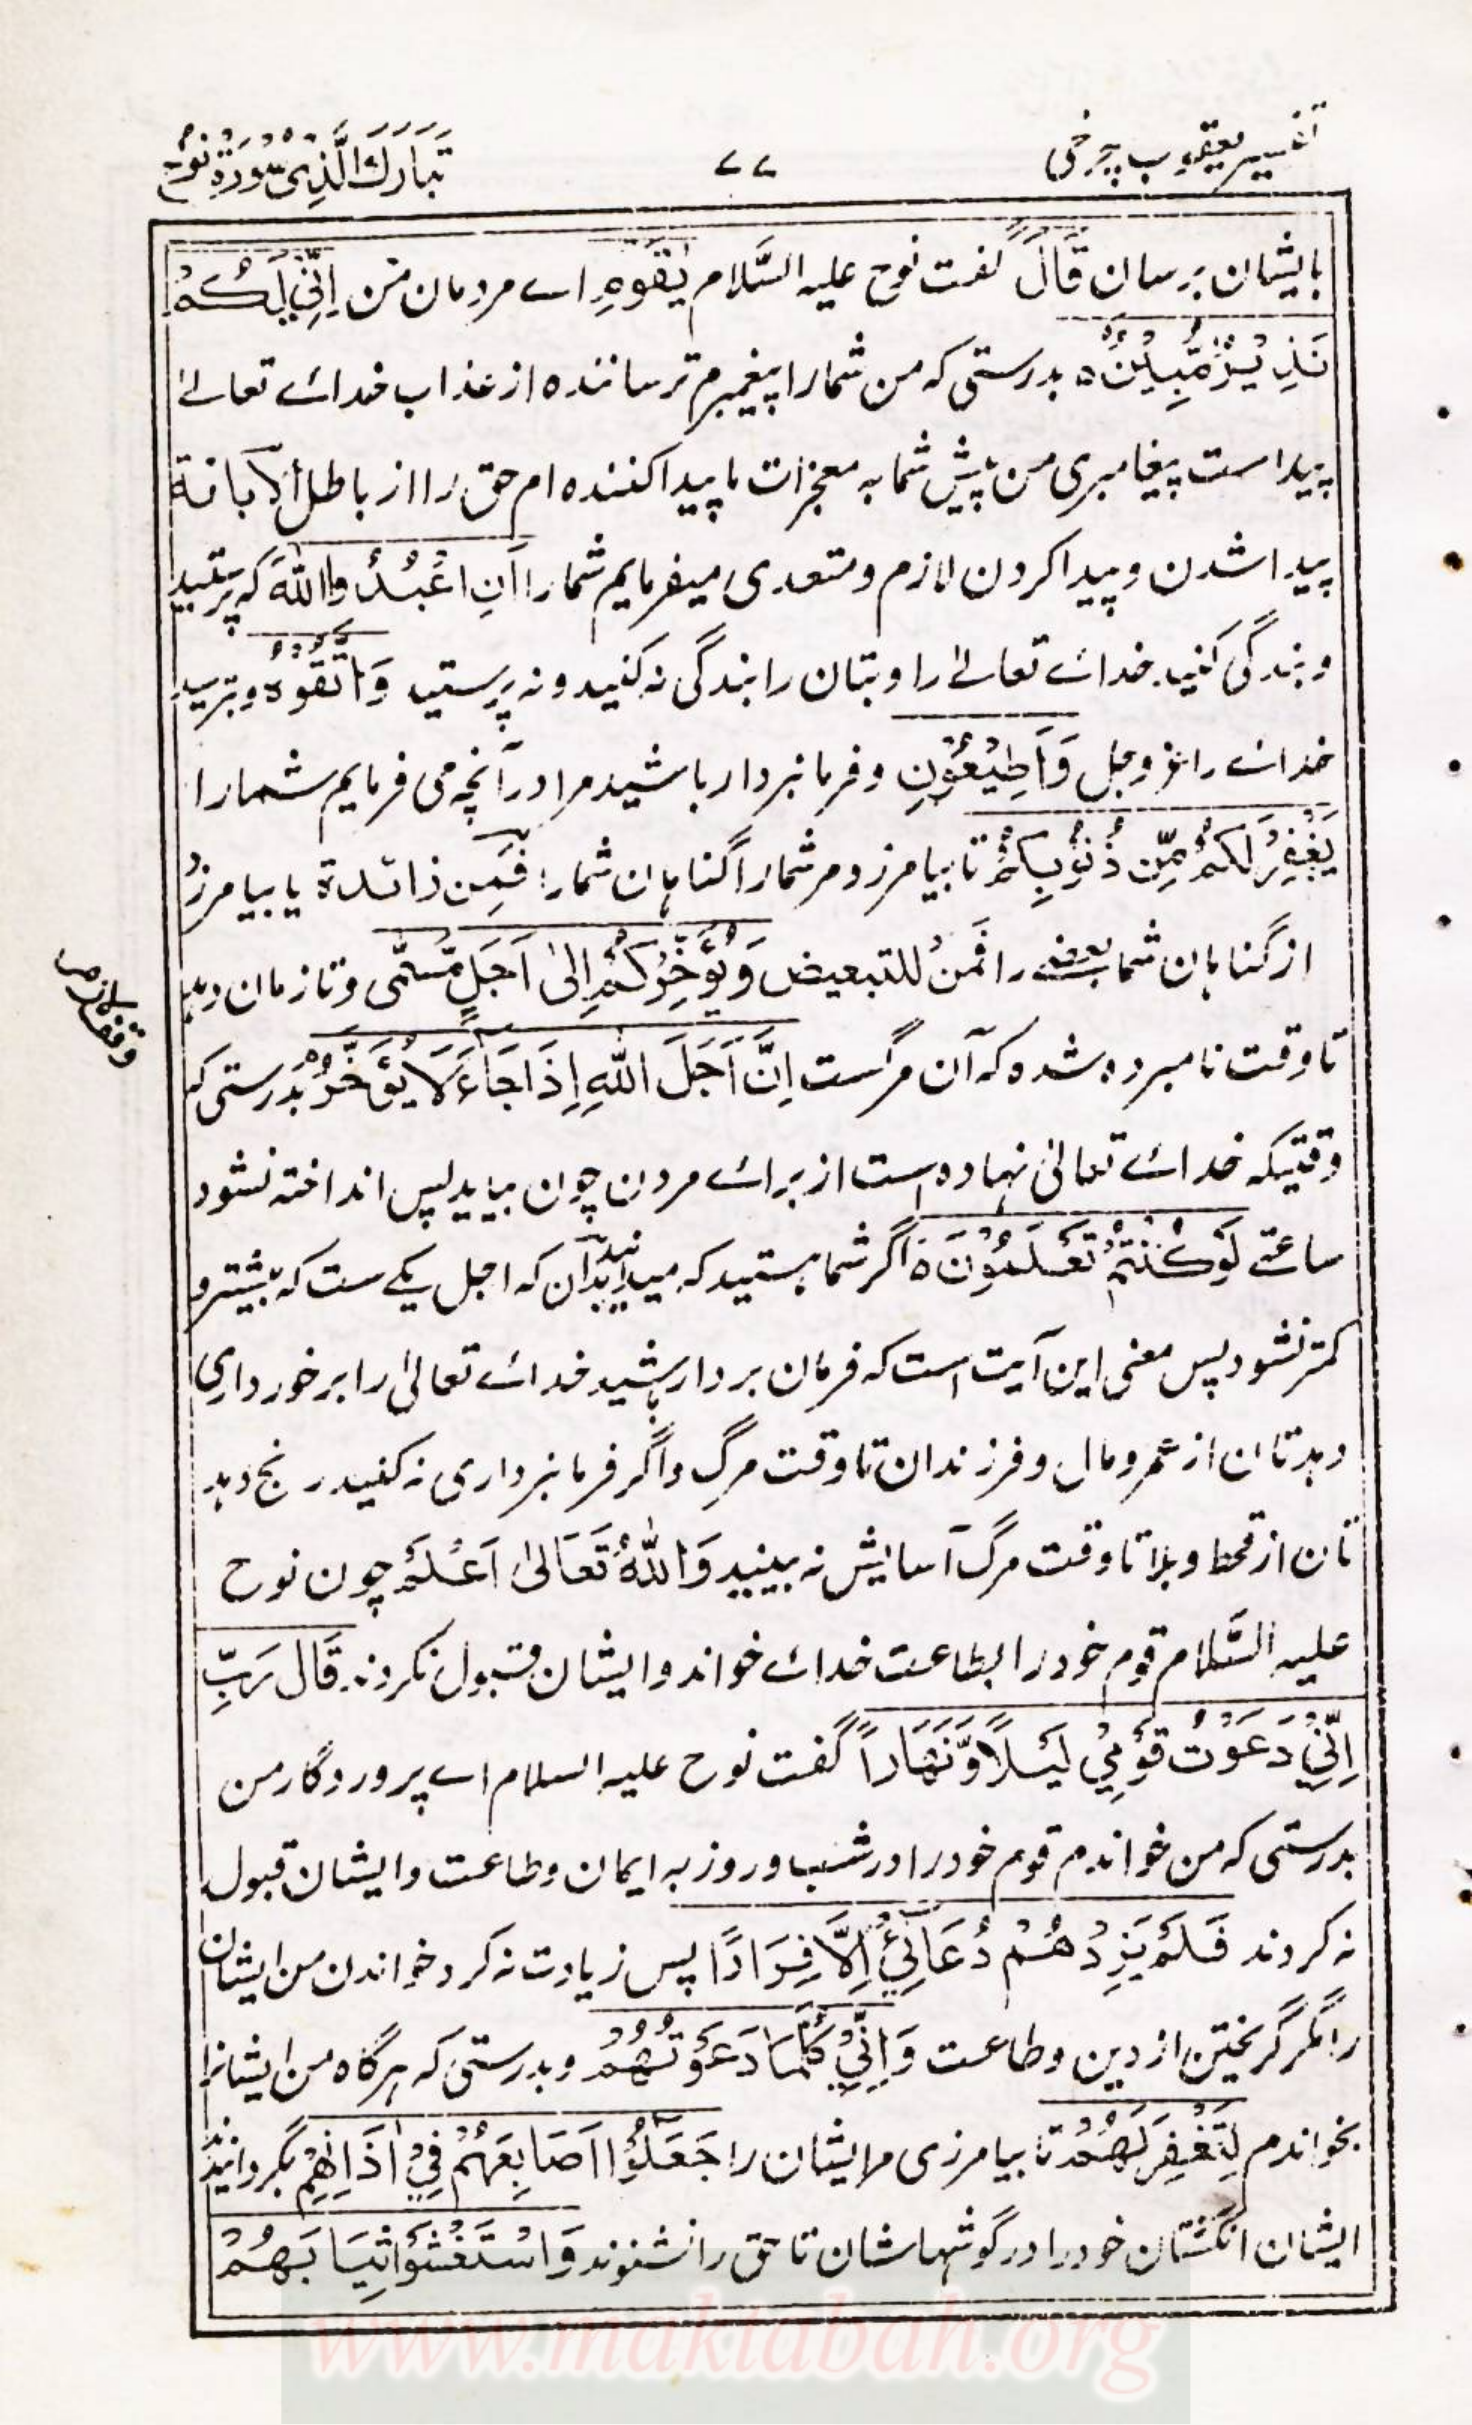 تفسیر یعقوب چرخی
۷۷
تَبَارَكَ الَّذِیْ سُوْرَةُ نُوْح
بایشان برسان قَالَ گفت نوح علیہ السَّلام یٰقَوْمِ اے مردمان من اِنِّیْ لَكُمْ
نَذِیْرٌ مُّبِیْنٌ ہ بدرستی کہ من شمارا پیغمبرم ترسانندہ از عذاب خداے تعالےٰ
پیداست پیغامبری من پیش شما بہ معجزات یا پیدا کنندہ ام حق را از باطل اَلْاِبَانَة
پیدا شدن و پیدا کردن لازم و متعدی میفرمایم شمارا اَنِ اعْبُدُوا اللّٰهَ کہ پرستید
و بندگی کنید خداے تعالےٰ را و بتان را بندگی نہ کنید و نہ پرستید وَاتَّقُوْهُ و بترسید
خداے را عزوجل وَاَطِیْعُوْنِ و فرمانبردار باشید مرا در آنچہ می فرمایم شمارا
یَغْفِرْ لَكُمْ مِّنْ ذُنُوْبِكُمْ تا بیامرزد مر شمارا گناہان شمارا فَمِن زائدة یا بیامرزد
از گناہان شما بعضے را فَمِنْ للتبعیض وَیُؤَخِّرْكُمْ اِلیٰ اَجَلٍ مُّسَمًّی و تا زمان دہد
وقف لازم
تا وقت نامبردہ شدہ کہ آن مرگست اِنَّ اَجَلَ اللّٰهِ اِذَا جَآءَ لَا یُؤَخَّرُ بدرستی کہ
وقتیکہ خداے تعالیٰ نہادہ است از براے مردن چون بیاید پس انداختہ نشود
ساعتے لَوْ كُنْتُمْ تَعْلَمُوْنَ ہ اگر شما ہستید کہ میدانید بدان کہ اجل یکے ست کہ بیشتر و
کمتر نشود پس معنی این آیت است کہ فرمان بردار باشید خداے تعالیٰ را برخورداری
دہدتان از عمر و مال و فرزندان تا وقت مرگ و اگر فرمانبرداری نہ کنید رنج دہد
تان از قحط و بلا تا وقت مرگ آسایش نہ بینید وَاللّٰهُ تَعَالیٰ اَعْلَمُ چون نوح
علیہ السَّلام قوم خود را بطاعت خداے خواند و ایشان قبول نکردند قَالَ رَبِّ
اِنِّیْ دَعَوْتُ قَوْمِیْ لَیْلًا وَّنَهَاراً گفت نوح علیہ السلام اے پروردگار من
بدرستی کہ من خواندم قوم خود را در شب و روز بہ ایمان و طاعت و ایشان قبول
نہ کردند فَلَمْ یَزِدْهُمْ دُعَآئِیْ اِلَّا فِرَارًا پس زیادت نہ کرد خواندن من ایشان
را مگر گریختن از دین و طاعت وَاِنِّیْ كُلَّمَا دَعَوْتُهُمْ و بدرستی کہ ہرگاہ من ایشانرا
بخواندم لِتَغْفِرَ لَهُمْ تا بیامرزی مر ایشان را جَعَلُوْا اَصَابِعَهُمْ فِیْ اٰذَانِهِمْ بگردانیدند
ایشان انگشتان خود را در گوشہاشان تا حق را نشنوند وَاسْتَغْشَوْا ثِیَابَهُمْ
www.maktabah.org